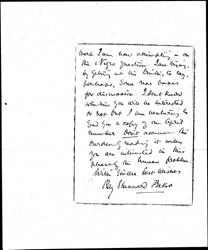 work I am now attempting - on
the Negro question. I am trying,
by getting at the truth, to lay,
perhaps, some new basis
for discussion. I don't know
whether you will be interested
or not but I am venturing to
send you a copy of our April
number. Don't assume the
burden of reading it unless
you are interested in this
phase of the human problem
With sincere best wishes
Ray Stannard Baker